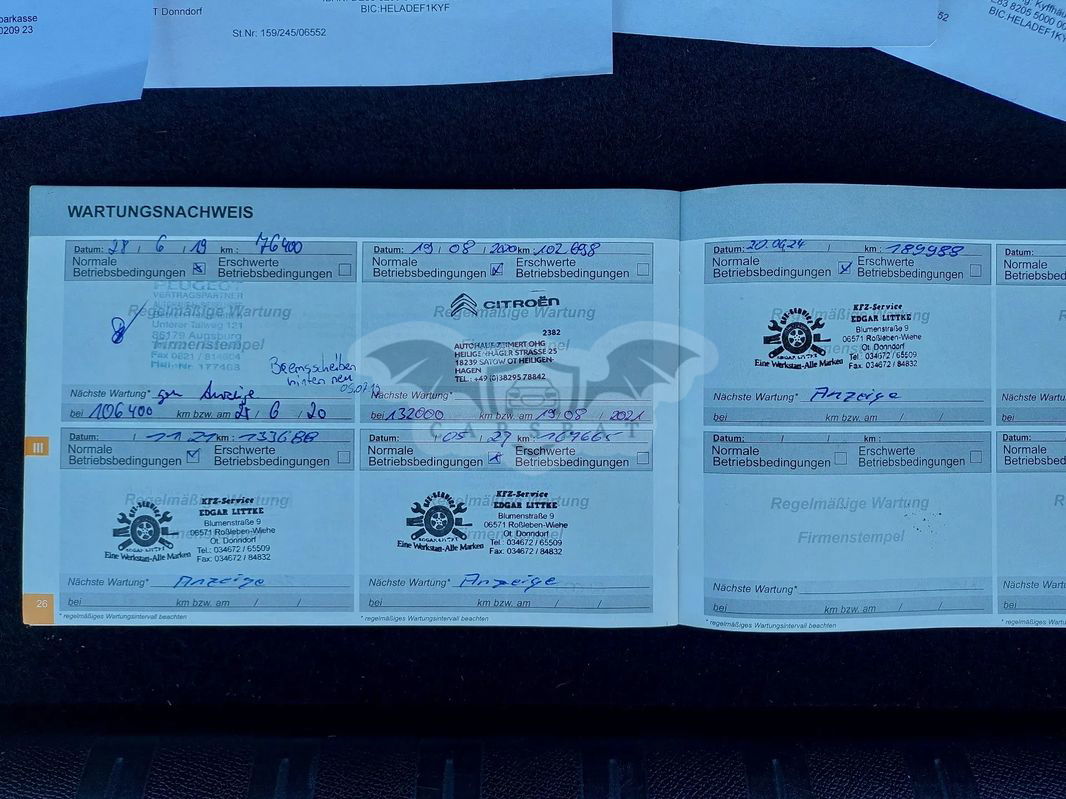 parkasse
0209 23
T Donndorf
BIC:HELADEF1KYF
St.Nr: 159/245/06552
52
E83 8205 5000 00
BIC:HELADEF1KY
WARTUNGSNACHWEIS
Datum: 28 / 6 / 19 km: 76400
Normale
Betriebsbedingungen
Erschwerte
Betriebsbedingungen
PEUGEOT
VERTRAGSPARTNER
Regelmäßige Wartung
Unterer Talweg 121
86179 Augsburg
Firmenstempel
Fax 0821 /
Bremsscheiben
hinten neu
05.07.19
Nächste Wartung* gem Anzeige
bei 106400 km bzw. am 28 / 6 / 20
Datum: 19 / 08 / 2020 km: 102.698
Normale
Betriebsbedingungen
Erschwerte
Betriebsbedingungen
CITROËN
Regelmäßige Wartung
2382
OHG
STRASSE 25
18239 SATOW OT HEILIGEN-
HAGEN
TEL.: +49 (0)38295 78842
Nächste Wartung*
bei 132000 km bzw. am 19 / 08 / 2021
CARSBAT
Datum: / 11.21 km: 133688
Normale
Betriebsbedingungen
Erschwerte
Betriebsbedingungen
Regelmäßige Wartung
GUT-SERVICE
EDGAR LITTKE
Eine Werkstatt-Alle Marken
KFZ-Service
EDGAR LITTKE
Blumenstraße 9
06571 Roßleben-Wiehe
Ot. Donndorf
Tel.: 034672 / 65509
Fax: 034672 / 84832
Nächste Wartung* Anzeige
bei km bzw. am / /
* regelmäßiges Wartungsintervall beachten
Datum: / 05 / km:
Normale
Betriebsbedingungen
Erschwerte
Betriebsbedingungen
Regelmäßige Wartung
GUT-SERVICE
EDGAR LITTKE
Eine Werkstatt-Alle Marken
KFZ-Service
EDGAR LITTKE
Blumenstraße 9
06571 Roßleben-Wiehe
Ot. Donndorf
Tel.: 034672 / 65509
Fax: 034672 / 84832
Nächste Wartung* Anzeige
bei km bzw. am / /
* regelmäßiges Wartungsintervall beachten
III
26
Datum: 20.04.24 / km: 189988
Normale
Betriebsbedingungen
Erschwerte
Betriebsbedingungen
Regelmäßige Wartung
GUT-SERVICE
EDGAR LITTKE
Eine Werkstatt-Alle Marken
KFZ-Service
EDGAR LITTKE
Blumenstraße 9
06571 Roßleben-Wiehe
Ot. Donndorf
Tel.: 034672 / 65509
Fax: 034672 / 84832
Nächste Wartung* Anzeige
bei km bzw. am / /
Datum:
Normale
Betriebsbedi
Nächste Wart
bei
Datum: / / km:
Normale
Betriebsbedingungen
Erschwerte
Betriebsbedingungen
Regelmäßige Wartung
Firmenstempel
Nächste Wartung*
bei km bzw. am / /
* regelmäßiges Wartungsintervall beachten
Datum:
Normale
Betriebsbedi
Nächste Wart
bei
* regelmäßiges Wa